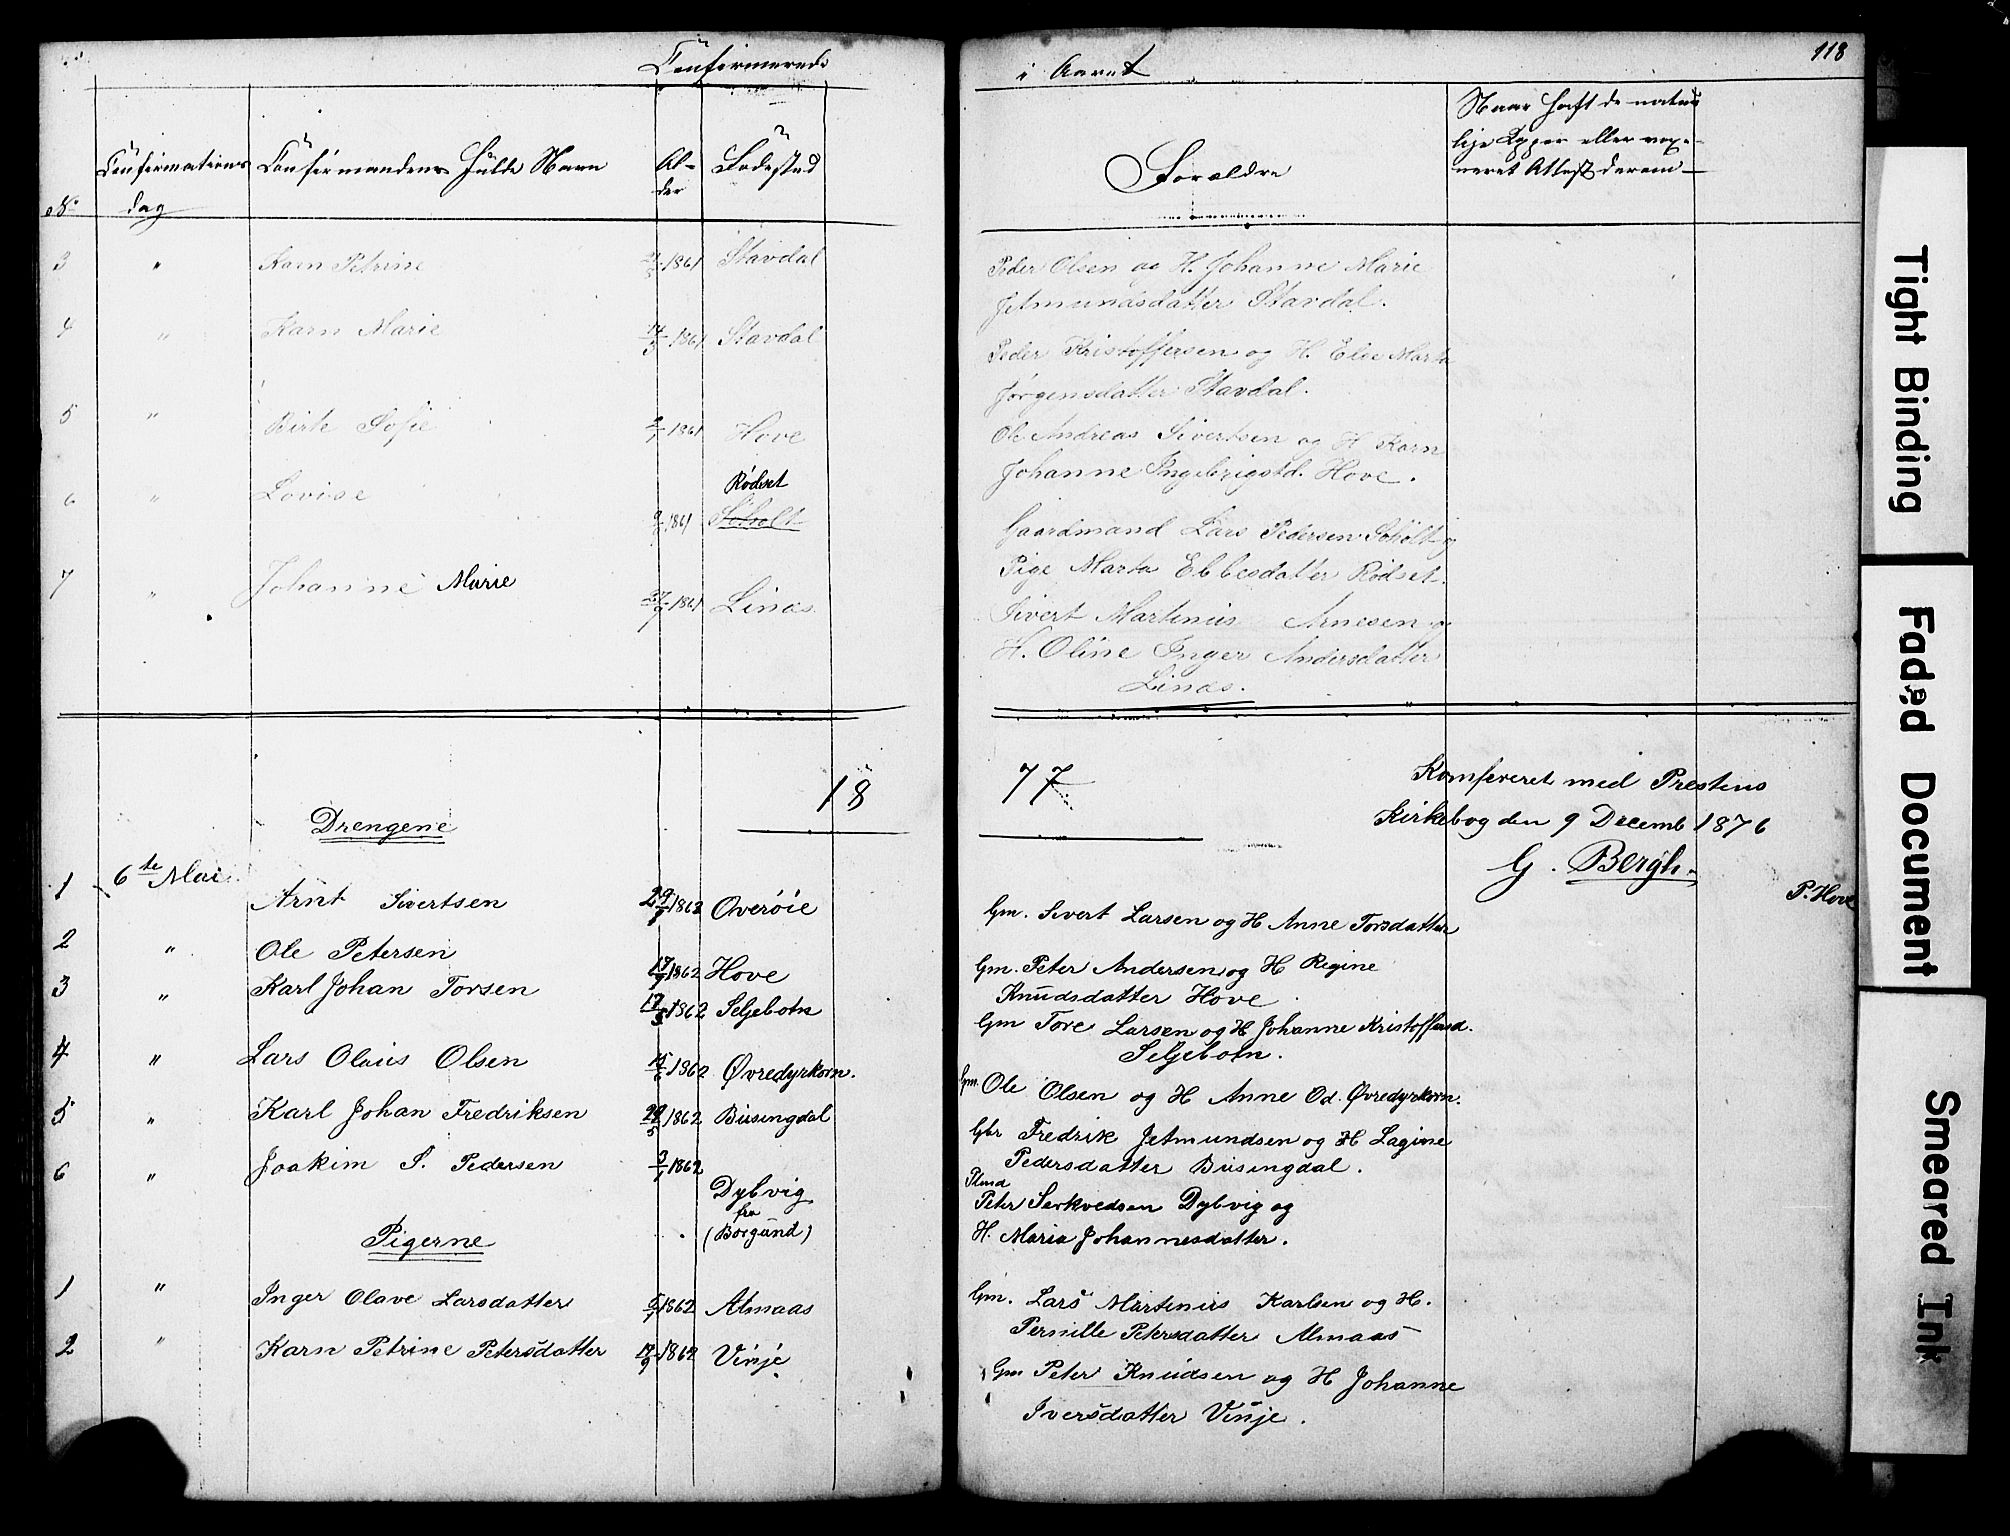 118
Confirmerede i Aaret
No Confirmations dag Confirmandens fulde Navn Alder Fødested
Forældre
Naar haft de natur
lige Kopper eller vax-
neret Attest derom
3 " Karn Petrine 1861 Stavdal Peder Olsen og H. Johanne Marie
Jetmundsdatter Stavdal.
4 " Karn Marie 14/3 1861 Stavdal Peder Kristoffersen og H. Else Marta
Jørgensdatter Stavdal.
5 " Birte Sofie 1861 Hove Ole Andreas Sivertsen og H Karn
Johanne Ingebrigtsd. Hove.
6 " Lovise 1861 Rødset
Søholt Gaardmand Lars Pedersen Søholt og
Pige Marta Ebbesdatter Rødset.
7 " Johanne Marie 27/9 1861 Linæs Sivert Martinus Arnesen og
H. Oline Inger Andersdatter
Linæs.
18 77
Komfereret med Prestens
Kirkebog den 9 Decemb 1876
G. Bergh.
P. Hove
Drengene
1 6te Mai Arnt Sivertsen 1862 Overøie Gm. Sivert Larsen og H Anne Torsdatter
2 " Ole Petersen 17/9 1862 Hove Gm. Peter Andersen og H Regine
Knudsdatter Hove
3 " Karl Johan Torsen 1862 Seljebotn Gm Tore Larsen og H Johanne Kristoffersd.
Seljebotn.
4 " Lars Olaus Olsen 1862 Øvredyrkorn. Gm. Ole Olsen og H Anne Od. Øvredyrkorn.
5 " Karl Johan Fredriksen 1862 Busingdal Gbr Fredrik Jetmundsen og H Lagine
Pedersdatter Busingdal.
6 " Joakim S. Pedersen 1862 Dybvig
fra
(Borgund) Plmd
Peter Serkvedsen Dybvig og
H. Maria Johannesdatter.
Pigerne
1 " Inger Olave Larsdatter 1862 Almaas Gm. Lars Martinus Karlsen og H.
Pernille Petersdatter Almaas
2 " Karn Petrine Petersdatter 1862 Vinje Gm Peter Knudsen og H Johanne
Iversdatter Vinje.
Tight Binding
Faded Document
Smeared Ink